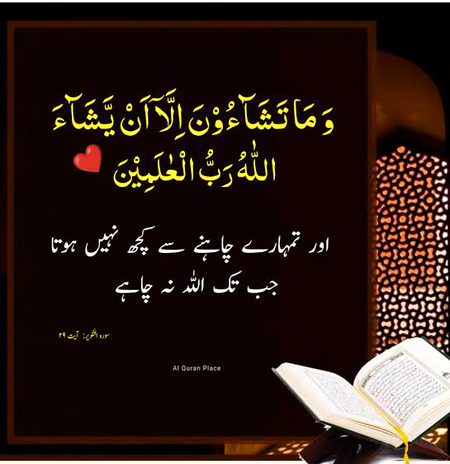 وَمَا تَشَآءُوْنَ اِلَّآ اَنْ يَّشَآءَ
اللّٰهُ رَبُّ الْعٰلَمِيْنَ
اور تمہارے چاہنے سے کچھ نہیں ہوتا
جب تک اللہ نہ چاہے
سورہ التکویر: آیت ۲۹
Al Quran Place